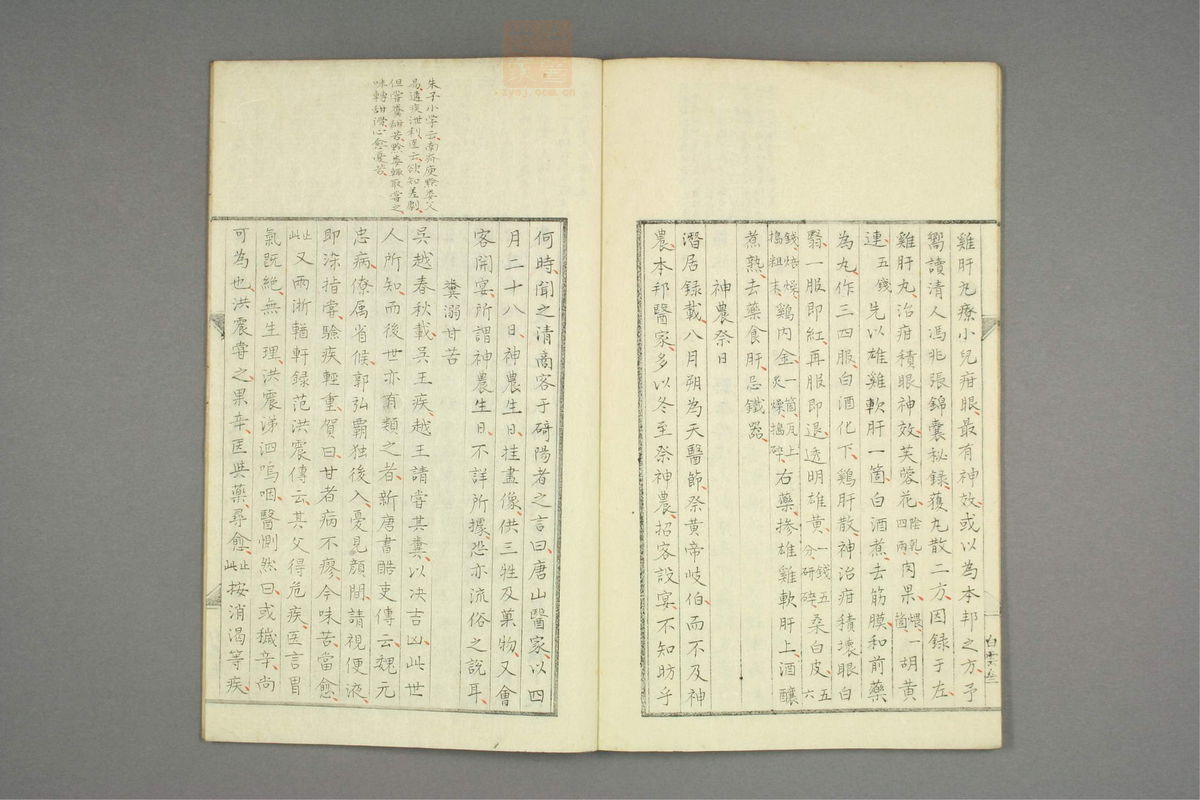 雞肝丸療小兒疳眼最有神效或以為本邦之方予
嚮讀清人馮兆張錦囊秘錄獲丸散二方因録于左
雞肝丸治疳積眼神效芙蓉花陰乾四兩肉果煨一箇胡黃
連五錢先以雄雞軟肝一箇白酒煮去筋膜和前藥
為丸作三四服白酒化下鷄肝散神治疳積壞眼白
翳一服即紅再服即退透明雄黃一錢五分研碎桑白皮五六
錢焙燥搗粗末鷄内金一箇瓦上炙燥搗碎右藥摻雄雞軟肝上酒釀
煮熟去藥食肝忌鐵器
神農祭日
潛居録載八月朔為天醫節祭黃帝岐伯而不及神
農本邦醫家多以冬至祭神農招客設宴不知昉乎
白雲
何時聞之清商客于碕陽者之言曰唐山醫家以四
月二十八日神農生日挂畫像供三牲及菓物又會
客開宴所謂神農生日不詳所據恐亦流俗之說耳
糞溺甘苦
吳越春秋載吳王疾越王請嘗其糞以决吉凶此世
人所知而後世亦有類之者新唐書酷吏傳云魏元
忠病僚属省候郭弘霸独後入憂見顏間請視便液
即染指嘗驗疾輕重賀曰甘者病不瘳今味苦當愈
止此又兩浙輶軒録范洪震傳云其父得危疾医言胃
氣既絶無生理洪震涕泗嗚咽醫惻然曰或穢辛尚
可為也洪震嘗之果辛医與藥尋愈止此按消渴等疾
朱子小学云南齊庾黔婁父
易遘疾泄利医云欲知差劇
但嘗糞甜苦黔婁輙取嘗之
味轉甜滑心愈憂苦
.zysj.com.cn